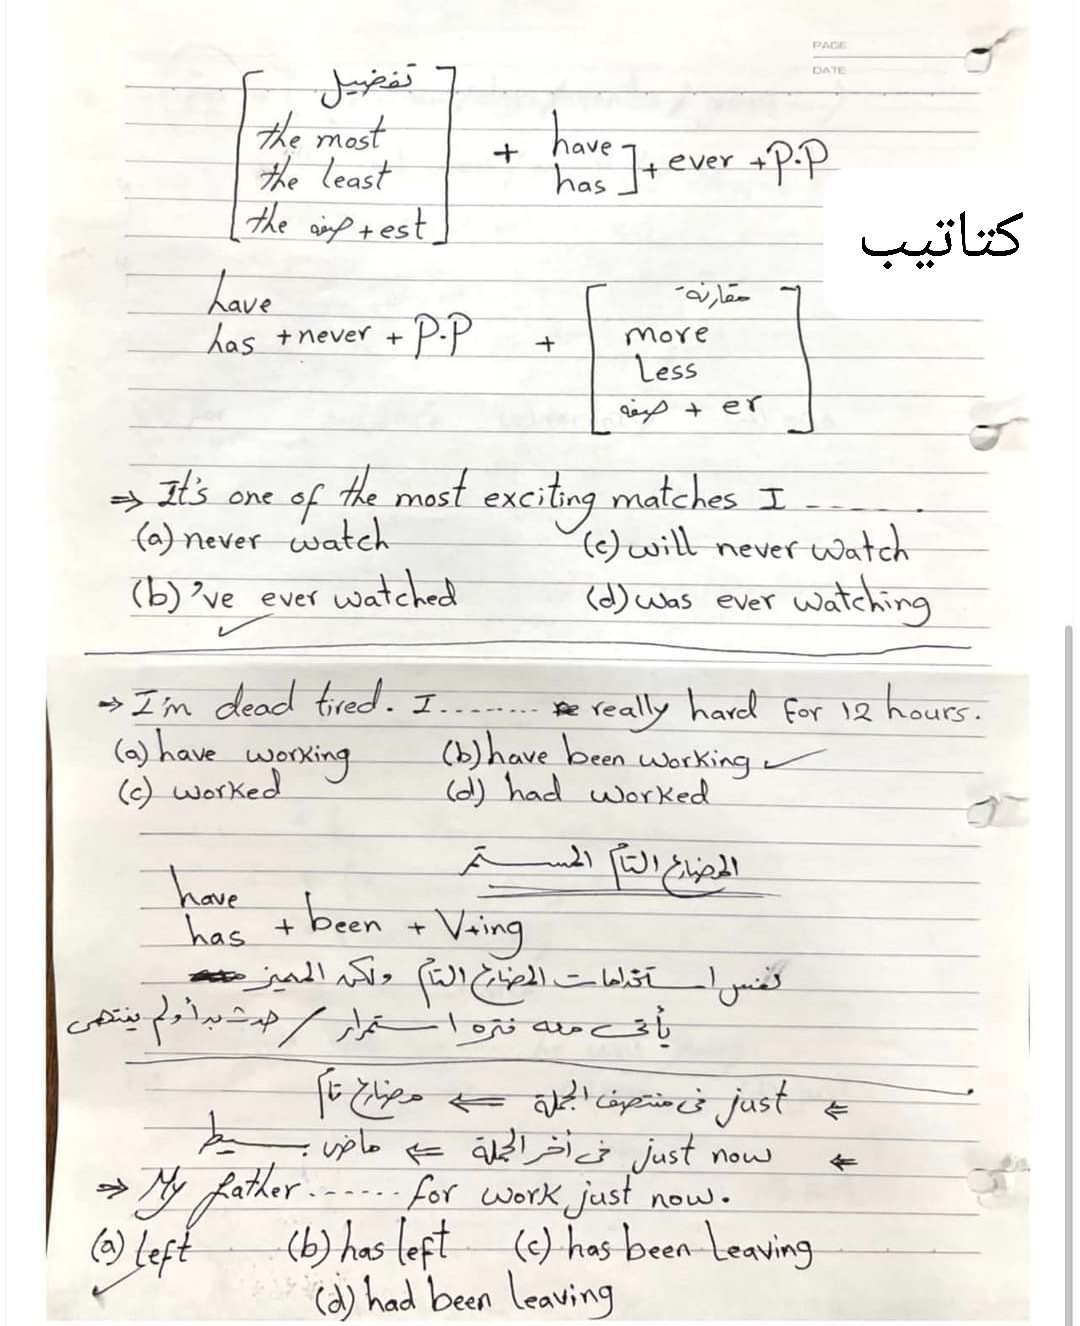 PAGE
DATE
تفضيل
the most
the least
the صفه + est
+ have
has
+ ever + P.P
كتاتيب
have
has + never + P.P +
مقارنة
more
Less
صفه + er
⇒ It's one of the most exciting matches I ----- .
(a) never watch (c) will never watch
(b) 've ever watched (d) was ever watching
⇒ I'm dead tired. I ........ really hard for 12 hours.
(a) have working (b) have been working
(c) worked (d) had worked
المضارع التام المستمر
have
has + been + V+ing
نفس استخدامات المضارع التام ولكن المميز
يأتى معه فتره استمرار / حدث بدأ ولم ينتهى
⇐ just فى منتصف الجملة ⇐ مضارع تام
⇐ just now فى أخر الجملة ⇐ ماضى بسيط
⇒ My father ....... for work just now.
(a) left (b) has left (c) has been leaving
(d) had been leaving